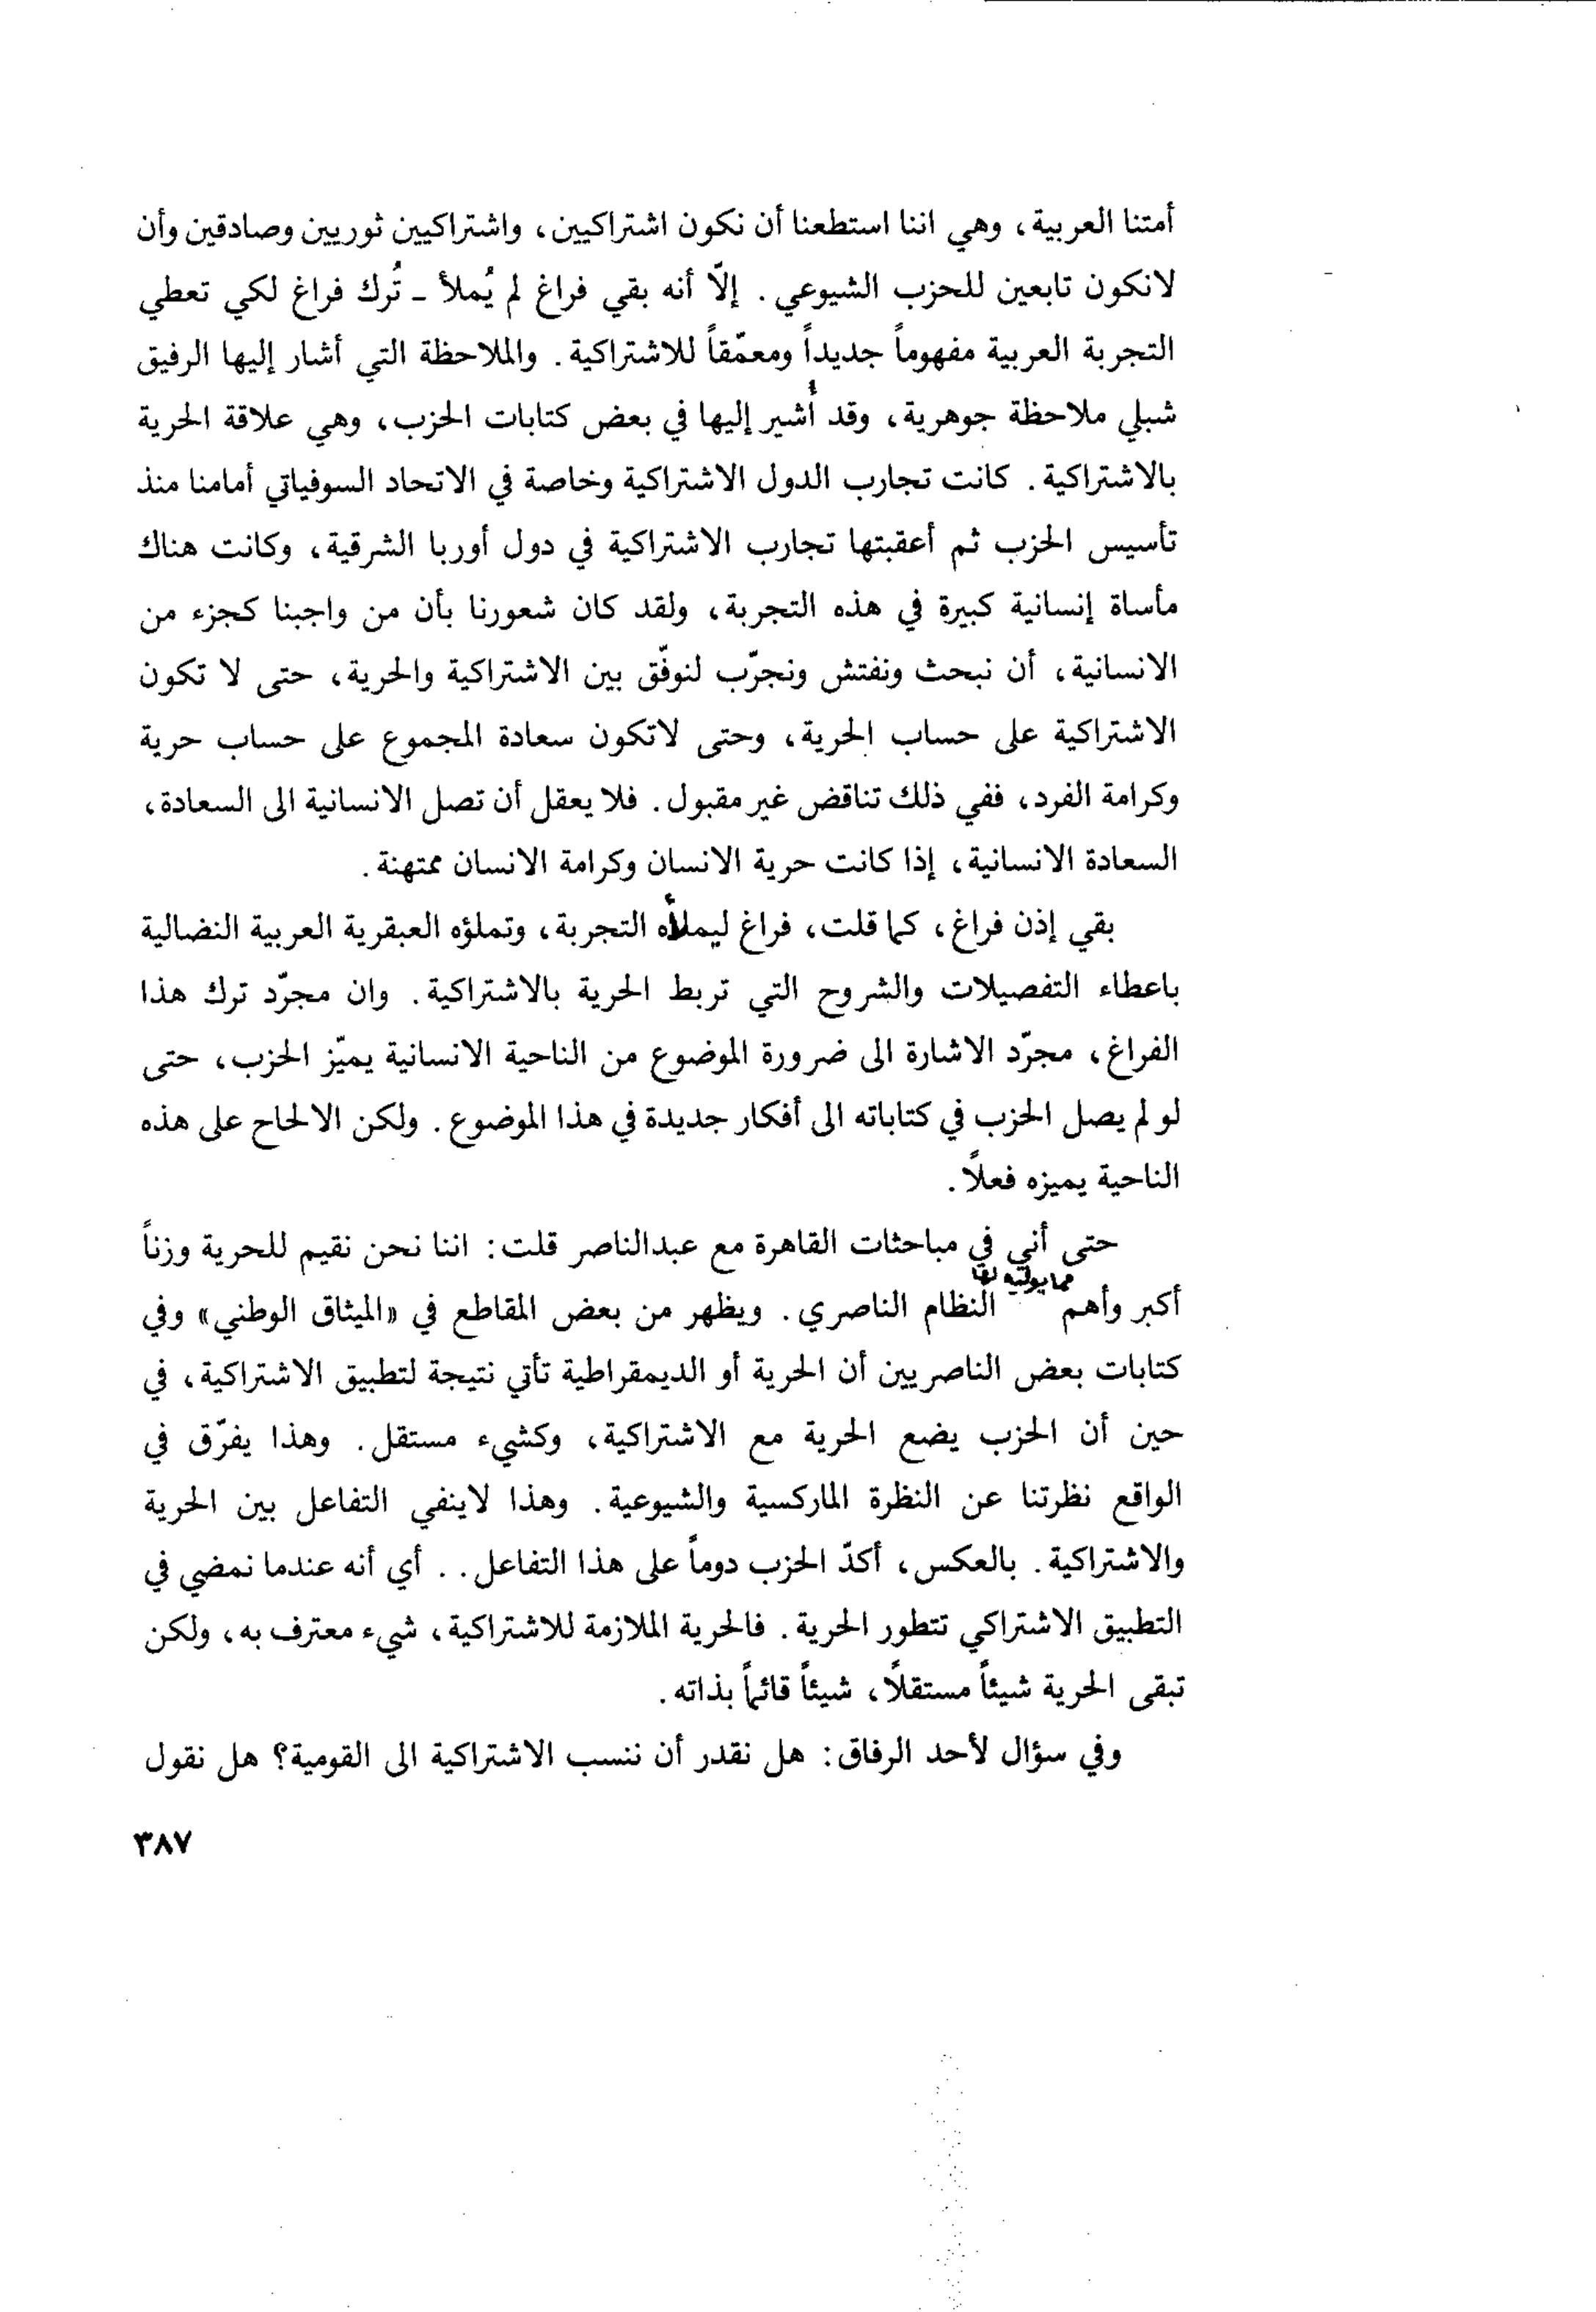 أمتنا العربية، وهي اننا استطعنا أن نكون اشتراكيين، واشتراكيين ثوريين وصادقين وأن
لانكون تابعين للحزب الشيوعي. إلاّ أنه بقي فراغ لم يُملأ ـ تُرك فراغ لكي تعطي
التجربة العربية مفهوماً جديداً ومعمّقاً للاشتراكية. والملاحظة التي أشار إليها الرفيق
شبلي ملاحظة جوهرية، وقد أُشير إليها في بعض كتابات الحزب، وهي علاقة الحرية
بالاشتراكية. كانت تجارب الدول الاشتراكية وخاصة في الاتحاد السوفياتي أمامنا منذ
تأسيس الحزب ثم أعقبتها تجارب الاشتراكية في دول أوربا الشرقية، وكانت هناك
مأساة إنسانية كبيرة في هذه التجربة، ولقد كان شعورنا بأن من واجبنا كجزء من
الانسانية، أن نبحث ونفتش ونجرّب لنوفّق بين الاشتراكية والحرية، حتى لا تكون
الاشتراكية على حساب الحرية، وحتى لاتكون سعادة المجموع على حساب حرية
وكرامة الفرد، ففي ذلك تناقض غير مقبول. فلا يعقل أن تصل الانسانية الى السعادة،
السعادة الانسانية، إذا كانت حرية الانسان وكرامة الانسان ممتهنة.
بقي إذن فراغ، كما قلت، فراغ ليملأه التجربة، وتملؤه العبقرية العربية النضالية
باعطاء التفصيلات والشروح التي تربط الحرية بالاشتراكية. وان مجرّد ترك هذا
الفراغ، مجرّد الاشارة الى ضرورة الموضوع من الناحية الانسانية يميّز الحزب، حتى
لو لم يصل الحزب في كتاباته الى أفكار جديدة في هذا الموضوع. ولكن الالحاح على هذه
الناحية يميزه فعلاً.
حتى أني في مباحثات القاهرة مع عبدالناصر قلت: اننا نحن نقيم للحرية وزناً
أكبر وأهم مما يوليه لها النظام الناصري. ويظهر من بعض المقاطع في «الميثاق الوطني» وفي
كتابات بعض الناصريين أن الحرية أو الديمقراطية تأتي نتيجة لتطبيق الاشتراكية، في
حين أن الحزب يضع الحرية مع الاشتراكية، وكشيء مستقل. وهذا يفرّق في
الواقع نظرتنا عن النظرة الماركسية والشيوعية. وهذا لاينفي التفاعل بين الحرية
والاشتراكية. بالعكس، أكدّ الحزب دوماً على هذا التفاعل. . أي أنه عندما نمضي في
التطبيق الاشتراكي تتطور الحرية. فالحرية الملازمة للاشتراكية، شيء معترف به، ولكن
تبقى الحرية شيئاً مستقلاً، شيئاً قائماً بذاته.
وفي سؤال لأحد الرفاق: هل نقدر أن ننسب الاشتراكية الى القومية؟ هل نقول
٣٨٧